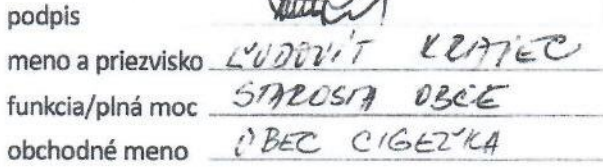 podpis
meno a priezvisko ĽUDOVÍT KRAJEC
funkcia/plná moc STAROSTA OBCE
obchodné meno OBEC CIGEĽKA